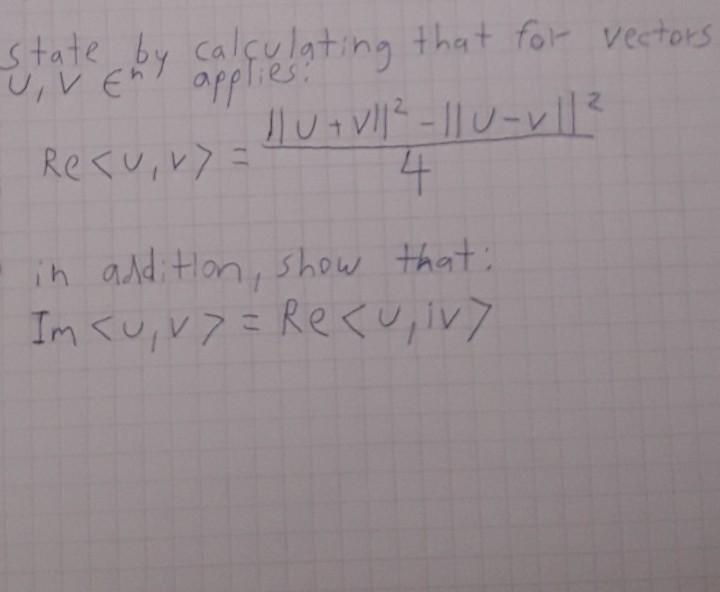 state by calculating that for vectors
U, V ∈ⁿ applies:
Re<U,V> = (||U+V||² - ||U-V||²) / 4
in addition, show that:
Im<U,V> = Re<U,iV>